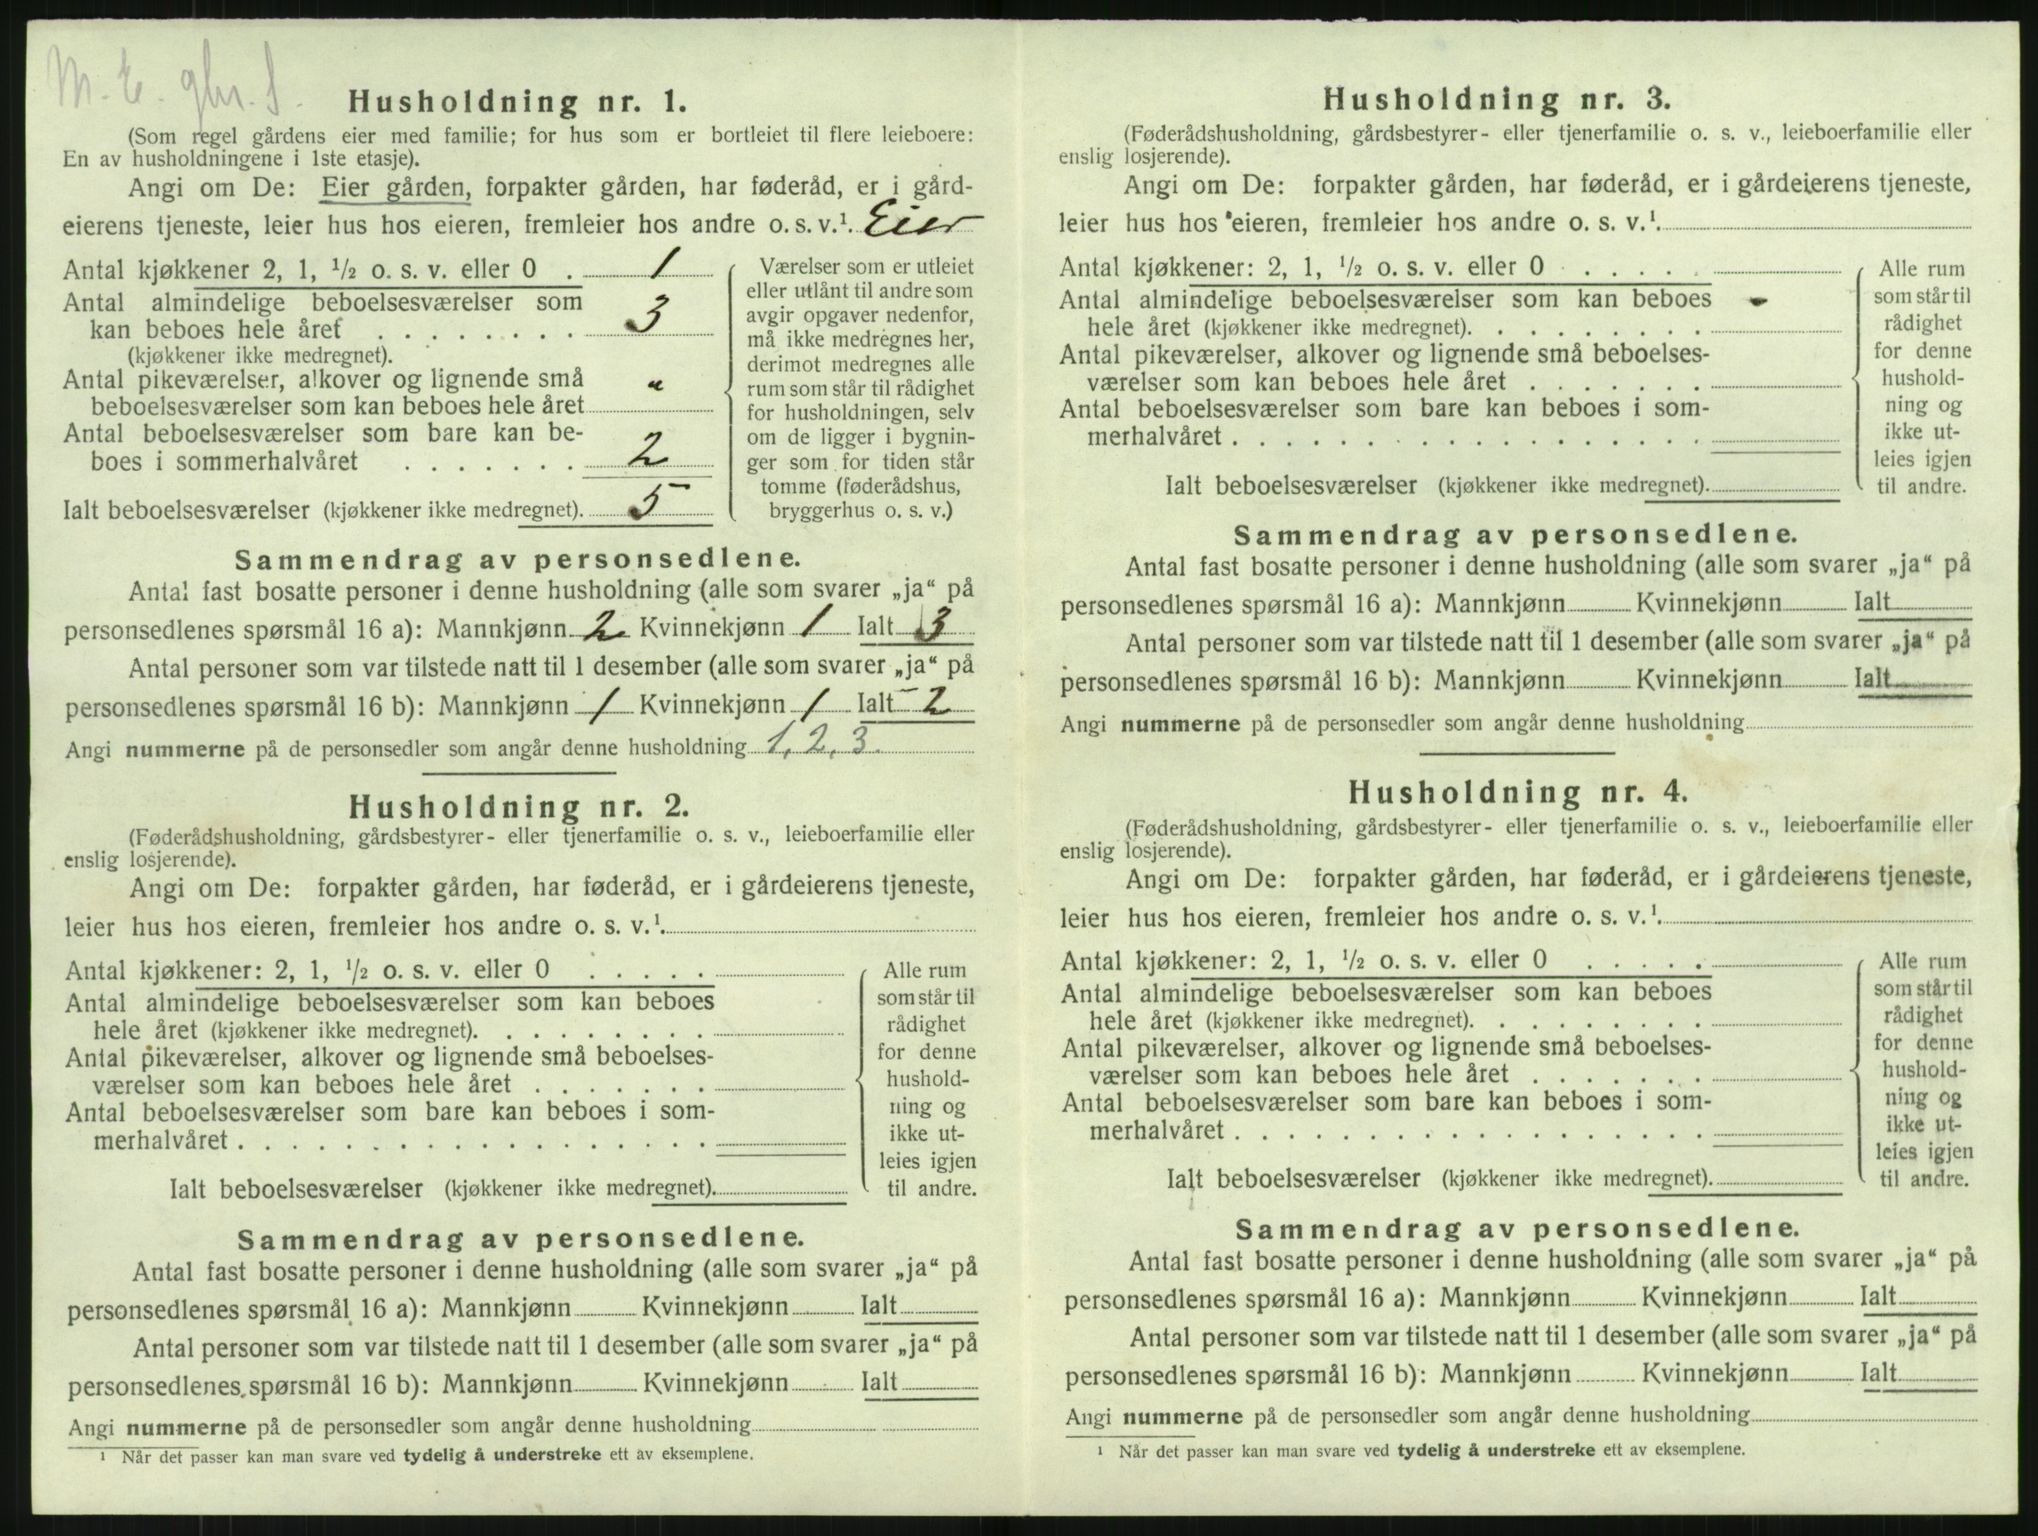 M. E. gbr. S.
Husholdning nr. 1.
(Som regel gårdens eier med familie; for hus som er bortleiet til flere leieboere:
En av husholdningene i 1ste etasje).
Angi om De: Eier gården, forpakter gården, har føderåd, er i gård-
eierens tjeneste, leier hus hos eieren, fremleier hos andre o. s. v.¹. Eier
Antal kjøkkener 2, 1, ½ o. s. v. eller 0 . 1
Antal almindelige beboelsesværelser som
kan beboes hele året . . . . . . . . 3
(kjøkkener ikke medregnet).
Antal pikeværelser, alkover og lignende små "
beboelsesværelser som kan beboes hele året
Antal beboelsesværelser som bare kan be-
boes i sommerhalvåret . . . . . . . 2
Ialt beboelsesværelser (kjøkkener ikke medregnet). 5
Værelser som er utleiet
eller utlånt til andre som
avgir opgaver nedenfor,
må ikke medregnes her,
derimot medregnes alle
rum som står til rådighet
for husholdningen, selv
om de ligger i bygnin-
ger som for tiden står
tomme (føderådshus,
bryggerhus o. s. v.)
Sammendrag av personsedlene.
Antal fast bosatte personer i denne husholdning (alle som svarer „ja“ på
personsedlenes spørsmål 16 a): Mannkjønn 2 Kvinnekjønn 1 Ialt 3
Antal personer som var tilstede natt til 1 desember (alle som svarer „ja“ på
personsedlenes spørsmål 16 b): Mannkjønn 1 Kvinnekjønn 1 Ialt 2
Angi nummerne på de personsedler som angår denne husholdning 1, 2, 3.
Husholdning nr. 2.
(Føderådshusholdning, gårdsbestyrer- eller tjenerfamilie o. s. v., leieboerfamilie eller
enslig losjerende).
Angi om De: forpakter gården, har føderåd, er i gårdeierens tjeneste,
leier hus hos eieren, fremleier hos andre o. s. v.¹.
Antal kjøkkener: 2, 1, ½ o. s. v. eller 0 . . . . .
Antal almindelige beboelsesværelser som kan beboes
hele året (kjøkkener ikke medregnet). . . . . . . . .
Antal pikeværelser, alkover og lignende små beboelses-
værelser som kan beboes hele året . . . . . . .
Antal beboelsesværelser som bare kan beboes i som-
merhalvåret . . . . . . . . . . . . . . . . . .
Ialt beboelsesværelser (kjøkkener ikke medregnet).
Alle rum
som står til
rådighet
for denne
hushold-
ning og
ikke ut-
leies igjen
til andre.
Sammendrag av personsedlene.
Antal fast bosatte personer i denne husholdning (alle som svarer „ja“ på
personsedlenes spørsmål 16 a): Mannkjønn Kvinnekjønn Ialt
Antal personer som var tilstede natt til 1 desember (alle som svarer „ja“ på
personsedlenes spørsmål 16 b): Mannkjønn Kvinnekjønn Ialt
Angi nummerne på de personsedler som angår denne husholdning
¹ Når det passer kan man svare ved tydelig å understreke ett av eksemplene.
Husholdning nr. 3.
(Føderådshusholdning, gårdsbestyrer- eller tjenerfamilie o. s. v., leieboerfamilie eller
enslig losjerende).
Angi om De: forpakter gården, har føderåd, er i gårdeierens tjeneste,
leier hus hos eieren, fremleier hos andre o. s. v.¹.
Antal kjøkkener: 2, 1, ½ o. s. v. eller 0 . . . . .
Antal almindelige beboelsesværelser som kan beboes
hele året (kjøkkener ikke medregnet). . . . . . . . .
Antal pikeværelser, alkover og lignende små beboelses-
værelser som kan beboes hele året . . . . . . .
Antal beboelsesværelser som bare kan beboes i som-
merhalvåret . . . . . . . . . . . . . . . . . .
Ialt beboelsesværelser (kjøkkener ikke medregnet).
Alle rum
som står til
rådighet
for denne
hushold-
ning og
ikke ut-
leies igjen
til andre.
Sammendrag av personsedlene.
Antal fast bosatte personer i denne husholdning (alle som svarer „ja“ på
personsedlenes spørsmål 16 a): Mannkjønn Kvinnekjønn Ialt
Antal personer som var tilstede natt til 1 desember (alle som svarer „ja“ på
personsedlenes spørsmål 16 b): Mannkjønn Kvinnekjønn Ialt
Angi nummerne på de personsedler som angår denne husholdning
Husholdning nr. 4.
(Føderådshusholdning, gårdsbestyrer- eller tjenerfamilie o. s. v., leieboerfamilie eller
enslig losjerende).
Angi om De: forpakter gården, har føderåd, er i gårdeierens tjeneste,
leier hus hos eieren, fremleier hos andre o. s. v.¹.
Antal kjøkkener: 2, 1, ½ o. s. v. eller 0 . . . . .
Antal almindelige beboelsesværelser som kan beboes
hele året (kjøkkener ikke medregnet). . . . . . . . .
Antal pikeværelser, alkover og lignende små beboelses-
værelser som kan beboes hele året . . . . . . .
Antal beboelsesværelser som bare kan beboes i som-
merhalvåret . . . . . . . . . . . . . . . . . .
Ialt beboelsesværelser (kjøkkener ikke medregnet).
Alle rum
som står til
rådighet
for denne
hushold-
ning og
ikke ut-
leies igjen
til andre.
Sammendrag av personsedlene.
Antal fast bosatte personer i denne husholdning (alle som svarer „ja“ på
personsedlenes spørsmål 16 a): Mannkjønn Kvinnekjønn Ialt
Antal personer som var tilstede natt til 1 desember (alle som svarer „ja“ på
personsedlenes spørsmål 16 b): Mannkjønn Kvinnekjønn Ialt
Angi nummerne på de personsedler som angår denne husholdning
¹ Når det passer kan man svare ved tydelig å understreke ett av eksemplene.